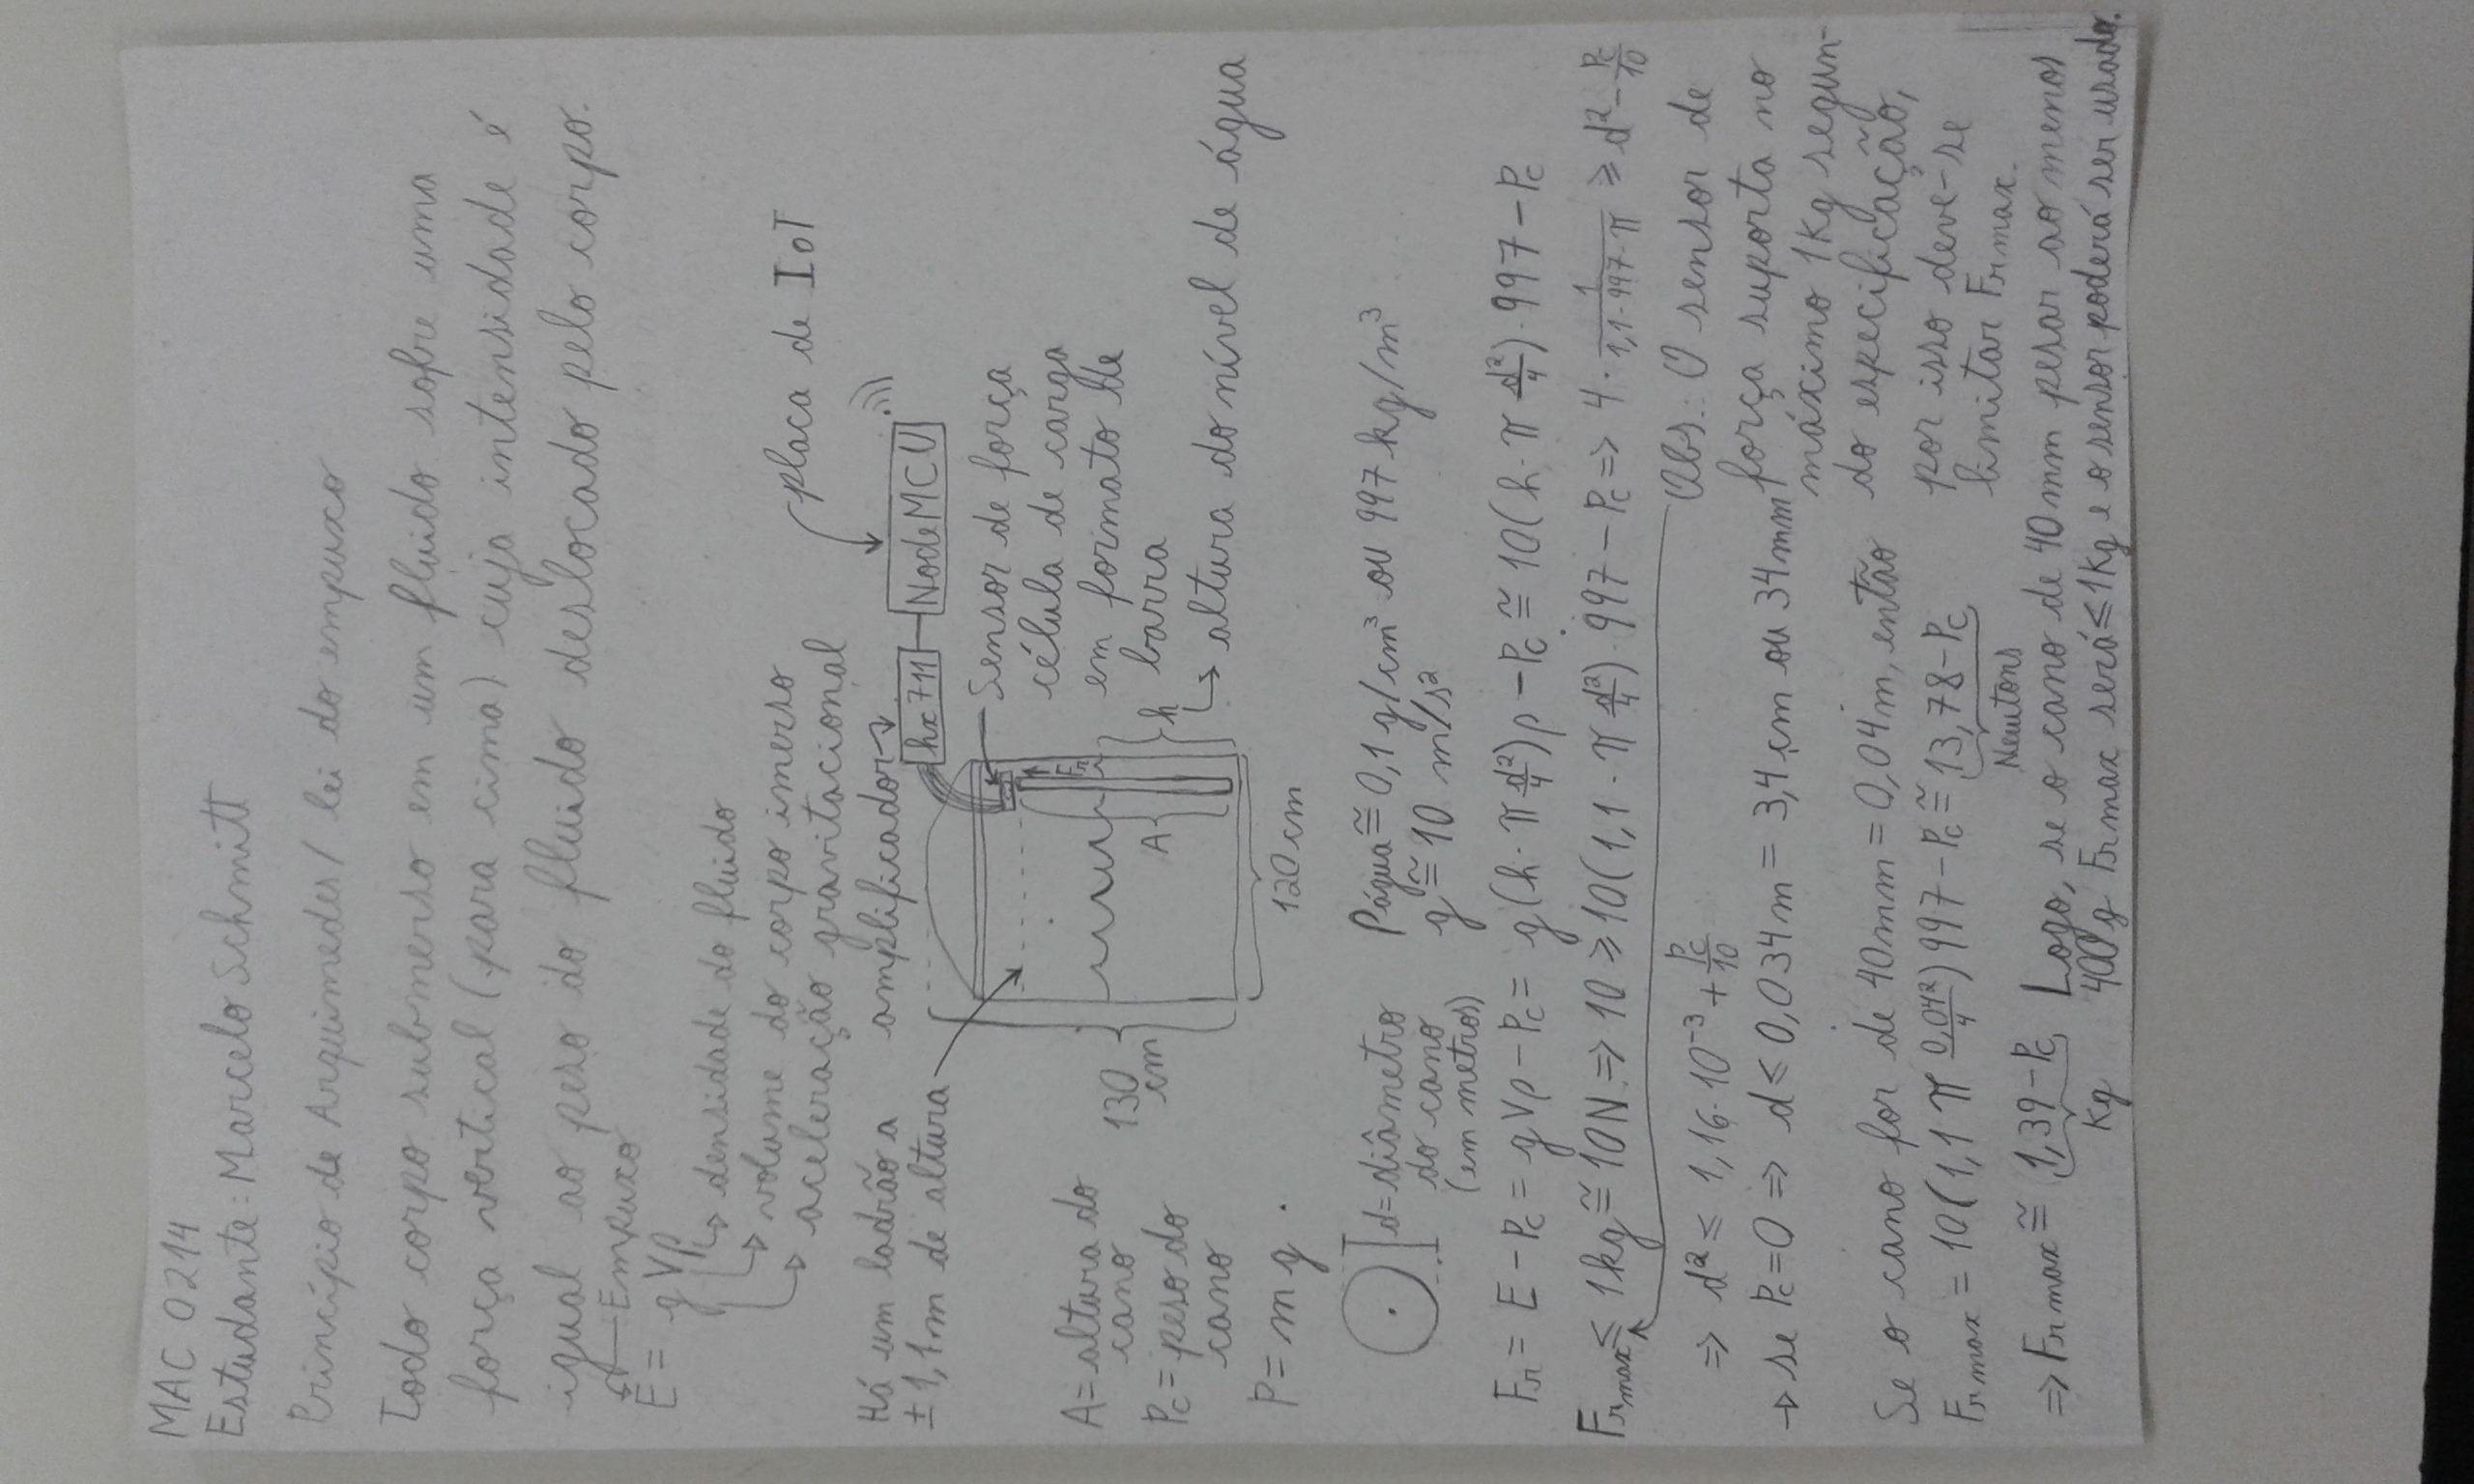 MAC 0214
Estudante: Marcelo Schmitt
Princípio de Arquimedes / lei do empuxo
Todo corpo submerso em um fluido sofre uma
força vertical (para cima) cuja intensidade é
igual ao peso do fluido deslocado pelo corpo.
Empuxo
E = gVρ
densidade do fluido
volume do corpo imerso
aceleração gravitacional
placa de IoT
Há um ladrão a
± 1,1m de altura
amplificador
hx711
NodeMCU
Sensor de força
célula de carga
em formato de
barra
Fr
A
h
altura do nível de água
130
cm
120cm
A = altura do
cano
Pc = peso do
cano
P = mg
d = diâmetro
do cano
(em metros)
ρágua ≅ 0,1 g/cm³ ou 997 kg/m³
g ≅ 10 m/s²
Fr = E - Pc = gVρ - Pc = g(h · π d²/4)ρ - Pc ≅ 10(h · π d²/4) · 997 - Pc
Frmax ≤ 1kg ≅ 10N ⇒ 10 ≥ 10(1,1 · π d²/4) · 997 - Pc ⇒ 4 · 1/(1,1·997·π) ≥ d² - Pc/10
⇒ d² ≤ 1,16·10⁻³ + Pc/10
→ se Pc = 0 ⇒ d ≤ 0,034m = 3,4cm ou 34mm
Obs.: O sensor de
força suporta no
máximo 1Kg segun-
do especificação,
por isso deve-se
limitar Frmax.
Se o cano for de 40mm = 0,04m, então
Frmax = 10(1,1 π 0,04²/4) 997 - Pc ≅ 13,78 - Pc
Newtons
⇒ Frmax ≅ 1,39 - Pc
Kg
Logo, se o cano de 40mm pesar ao menos
400g Frmax será ≤ 1Kg e o sensor poderá ser usado.